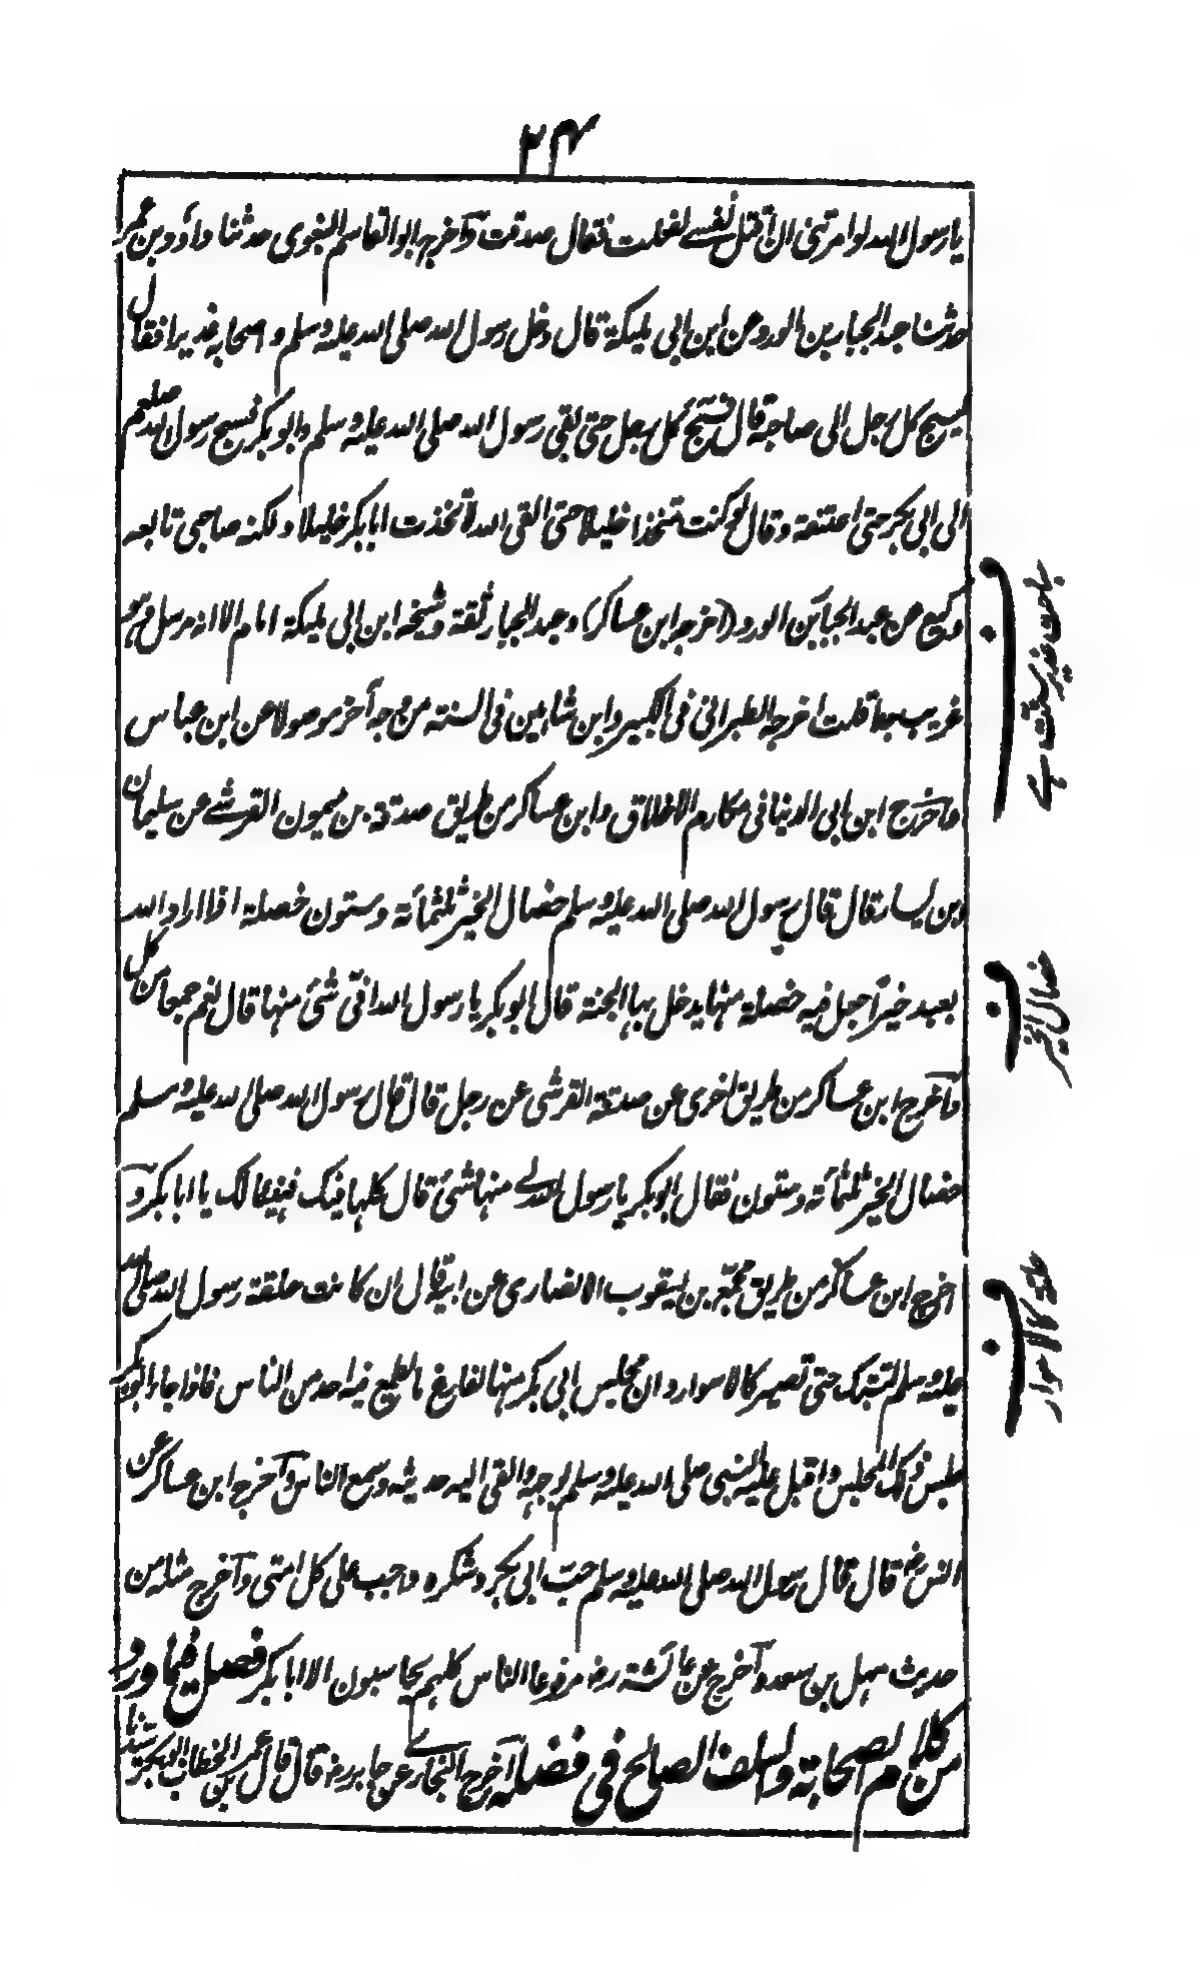 ۲۴
يا رسول الله لو امرتنی ان اقتل نفسے لفعلت فقال صدقت وآخرج ابو القاسم البغوی حدثنا داؤد بن عمر
حدثنا عبد الجبار بن الورد عن ابن ابی ملیکة قال دخل رسول الله صلی الله علیه وسلم و اصحابه غدیرا فقال
لیسبح کل رجل الی صاحبه قال فسبح کل رجل حتی بقی رسول الله صلی الله علیه وسلم وابو بکر فسبح رسول الله صلعم
الی ابی بکر حتی اعتنقه وقال لو کنت متخذا خلیلا حتی القی الله لاتخذت ابا بکر خلیلا ولکنه صاحبی تابعه
وکیع عن عبد الجبار بن الورد (اخرجه ابن عساکر) وعبد الجبار ثقة وشیخه ابن ابی ملیکة امام الا انه مرسل وهو
غریب جدا قلت اخرجه الطبرانی فی الکبیر وابن شاہین فی السنته من وجه آخر موصولا عن ابن عباس
واخرج ابن ابی الدنیا فی مکارم الاخلاق وابن عساکر من طریق صدقة بن میمون القرشے عن سلیمان
بن یسار قال قال رسول الله صلی الله علیه وسلم خصال الخیر ثلثمأئة وستون خصلة اذا اراد الله
بعبد خیرا جعل فیه خصلة منها یدخل بها الجنة قال ابو بکر یا رسول الله افیّ شئ منها قال نعم جمعا من کل
وآخرج ابن عساکر من طریق اخری عن صدقة القرشی عن رجل قال قال رسول الله صلی الله علیه وسلم
خصال الخیر ثلثمأئة وستون فقال ابو بکر یا رسول الله لے منها شئ قال کلها فیک فهنیئا لک یا ابا بکر و
اخرج ابن عساکر من طریق مجمع بن یعقوب الانصاری عن ابیه قال ان کانت حلقة رسول الله صلی الله
علیه وسلم لتشتبک حتی تصیر کالاسوار وان مجلس ابی بکر منها لفارغ ما یطمع فیه احد من الناس فاذا جاء ابو بکر
جلس ذلک المجلس واقبل علیه النبی صلی الله علیه وسلم بوجهه والقی الیه حدیثه وسمع الناس وآخرج ابن عساکر عن
انس رض قال قال رسول الله صلی الله علیه وسلم حب ابی بکر وشکره واجب علی کل امتی وآخرج مثله من
حدیث سهل بن سعد وآخرج عن عائشة رض مرفوعا الناس کلهم یحاسبون الا ابا بکر فصل فیما ورد
من کلام الصحابة والسلف الصالح فی فضله آخرج البخاری عن جابر رض قال قال عمر بن الخطاب ابو بکر سیدنا
خصال الخیر
حلقه کالاسوار